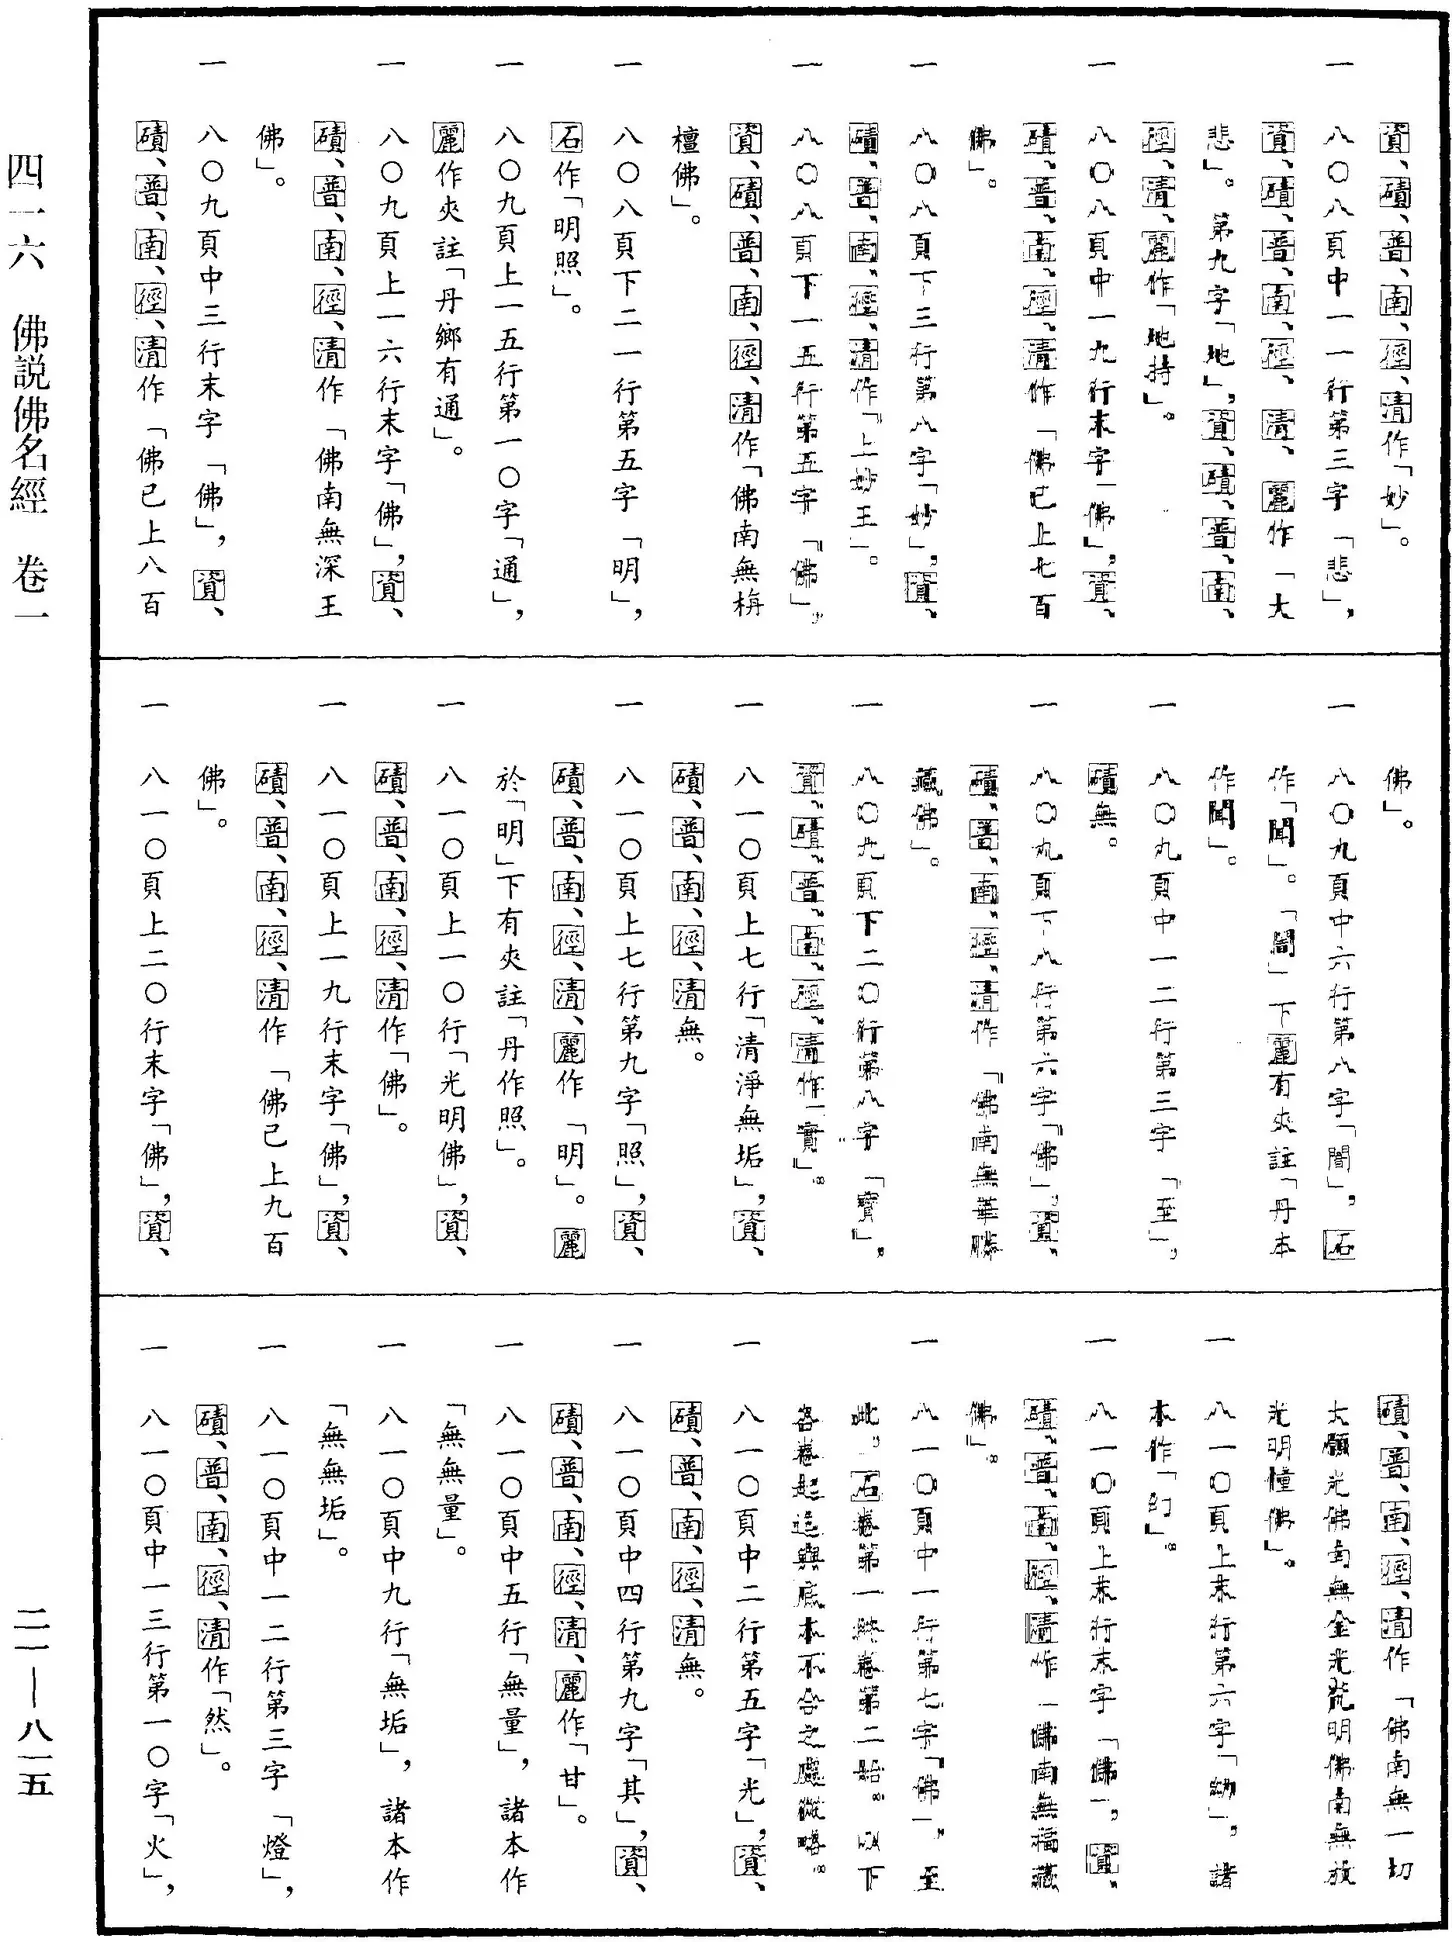 四一六　佛説佛名經　卷一
二一—八一五
資、磧、普、南、徑、清作「妙」。
一　八〇八頁中一一行第三字「悲」，
資、磧、普、南、徑、清、麗作「大
悲」。第九字「地」，資、磧、普、南、
徑、清、麗作「地持」。
一　八〇八頁中一九行末字「佛」，資、
磧、普、南、徑、清作「佛已上七百
佛」。
一　八〇八頁下三行第八字「妙」，資、
磧、普、南、徑、清作「上妙王」。
一　八〇八頁下一五行第五字「佛」，
資、磧、普、南、徑、清作「佛南無栴
檀佛」。
一　八〇八頁下二一行第五字「明」，
石作「明照」。
一　八〇九頁上一五行第一〇字「通」，
麗作夾註「丹鄉有通」。
一　八〇九頁上一六行末字「佛」，資、
磧、普、南、徑、清作「佛南無深王
佛」。
一　八〇九頁中三行末字「佛」，資、
磧、普、南、徑、清作「佛已上八百
佛」。
一　八〇九頁中六行第八字「闇」，石
作「聞」。「闇」下麗有夾註「丹本
作聞」。
一　八〇九頁中一二行第三字「至」，
磧無。
一　八〇九頁下八行第六字「佛」，資、
磧、普、南、徑、清作「佛南無華勝
藏佛」。
一　八〇九頁下二〇行第八字「寶」，
資、磧、普、南、徑、清作「實」。
一　八一〇頁上七行「清淨無垢」，資、
磧、普、南、徑、清無。
一　八一〇頁上七行第九字「照」，資、
磧、普、南、徑、清、麗作「明」。麗
於「明」下有夾註「丹作照」。
一　八一〇頁上一〇行「光明佛」，資、
磧、普、南、徑、清作「佛」。
一　八一〇頁上一九行末字「佛」，資、
磧、普、南、徑、清作「佛已上九百
佛」。
一　八一〇頁上二〇行末字「佛」，資、
磧、普、南、徑、清作「佛南無一切
大願光佛南無金光荒明佛南無放
光明憧佛」。
一　八一〇頁上末行第六字「幼」，諸
本作「幻」。
一　八一〇頁上末行末字「佛」，資、
磧、普、南、徑、清作「佛南無福藏
佛」。
一　八一〇頁中一行第七字「佛」，至
此，石卷第一終卷第二始。以下
各卷起迄與底本不合之處從略。
一　八一〇頁中二行第五字「光」，資、
磧、普、南、徑、清無。
一　八一〇頁中四行第九字「其」，資、
磧、普、南、徑、清、麗作「甘」。
一　八一〇頁中五行「無量」，諸本作
「無無量」。
一　八一〇頁中九行「無垢」，諸本作
「無無垢」。
一　八一〇頁中一二行第三字「燈」，
磧、普、南、徑、清作「然」。
一　八一〇頁中一三行第一〇字「火」，